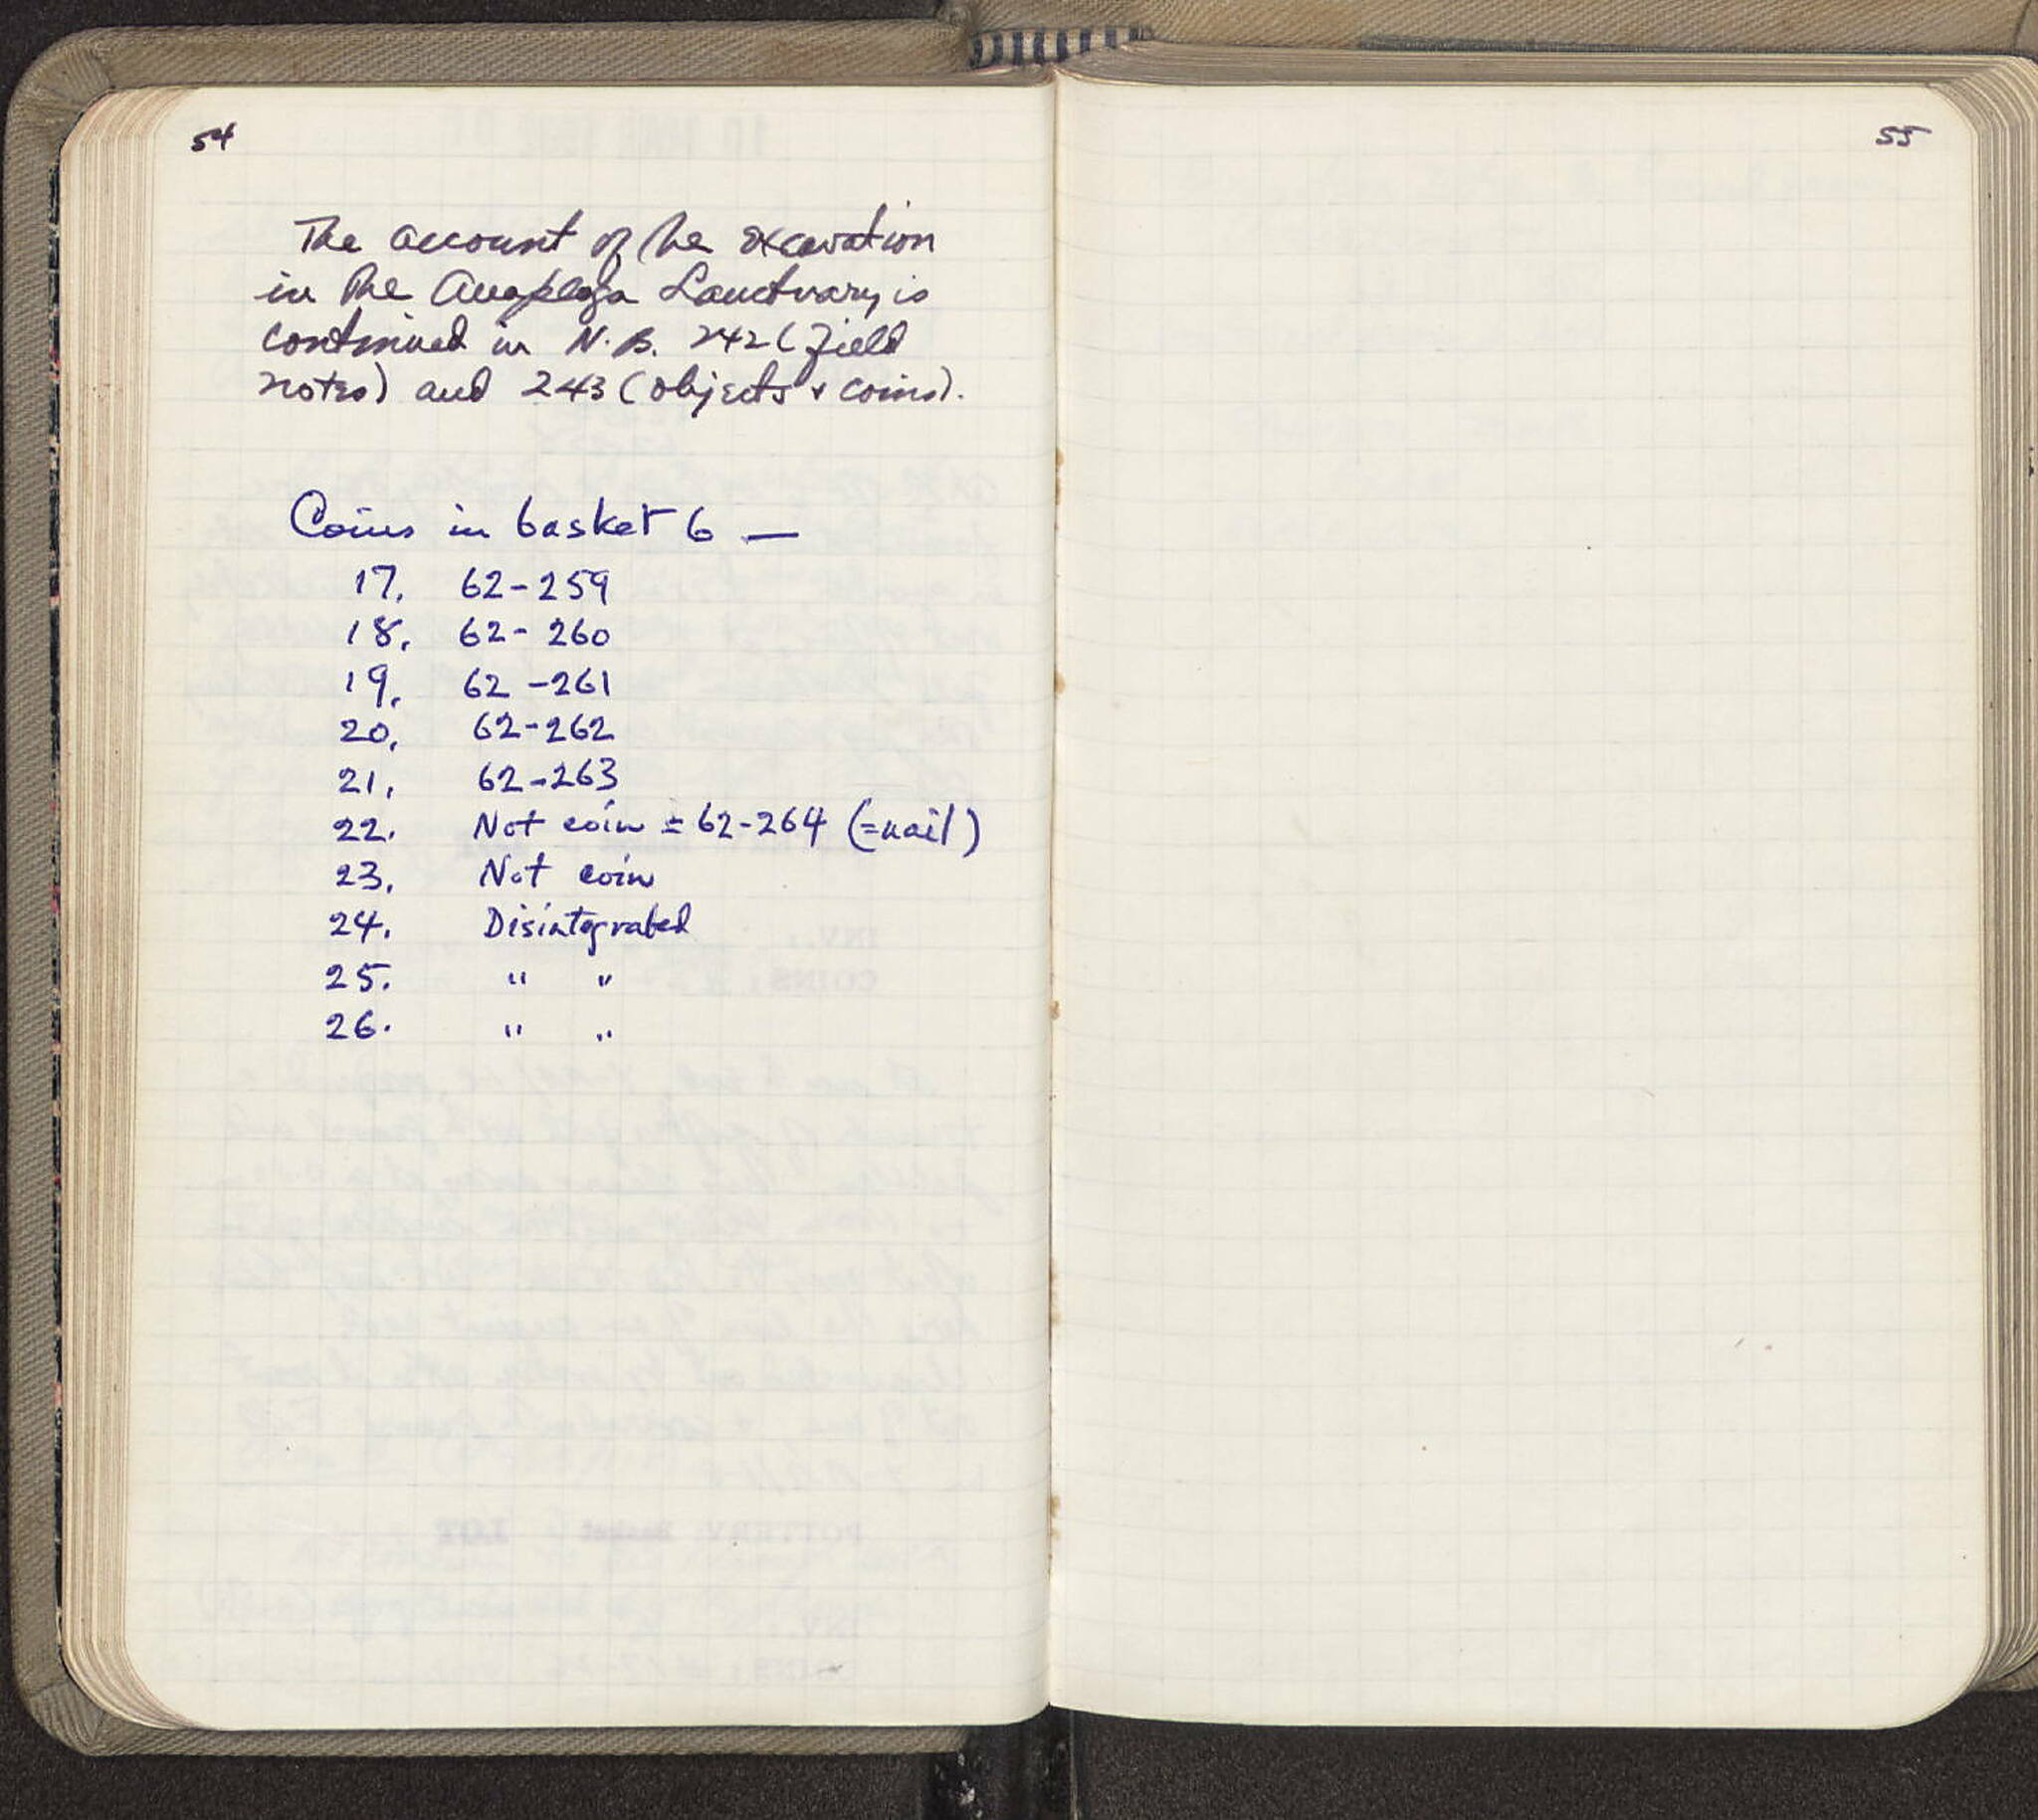 54
The account of the excavation
in the Anaploga Sanctuary is
continued in N.B. 242 (field
notes) and 243 (objects & coins).
Coins in basket 6 —
17. 62-259
18. 62-260
19. 62-261
20. 62-262
21. 62-263
22. Not coin = 62-264 (=nail)
23. Not coin
24. Disintegrated
25. " "
26. " "
55